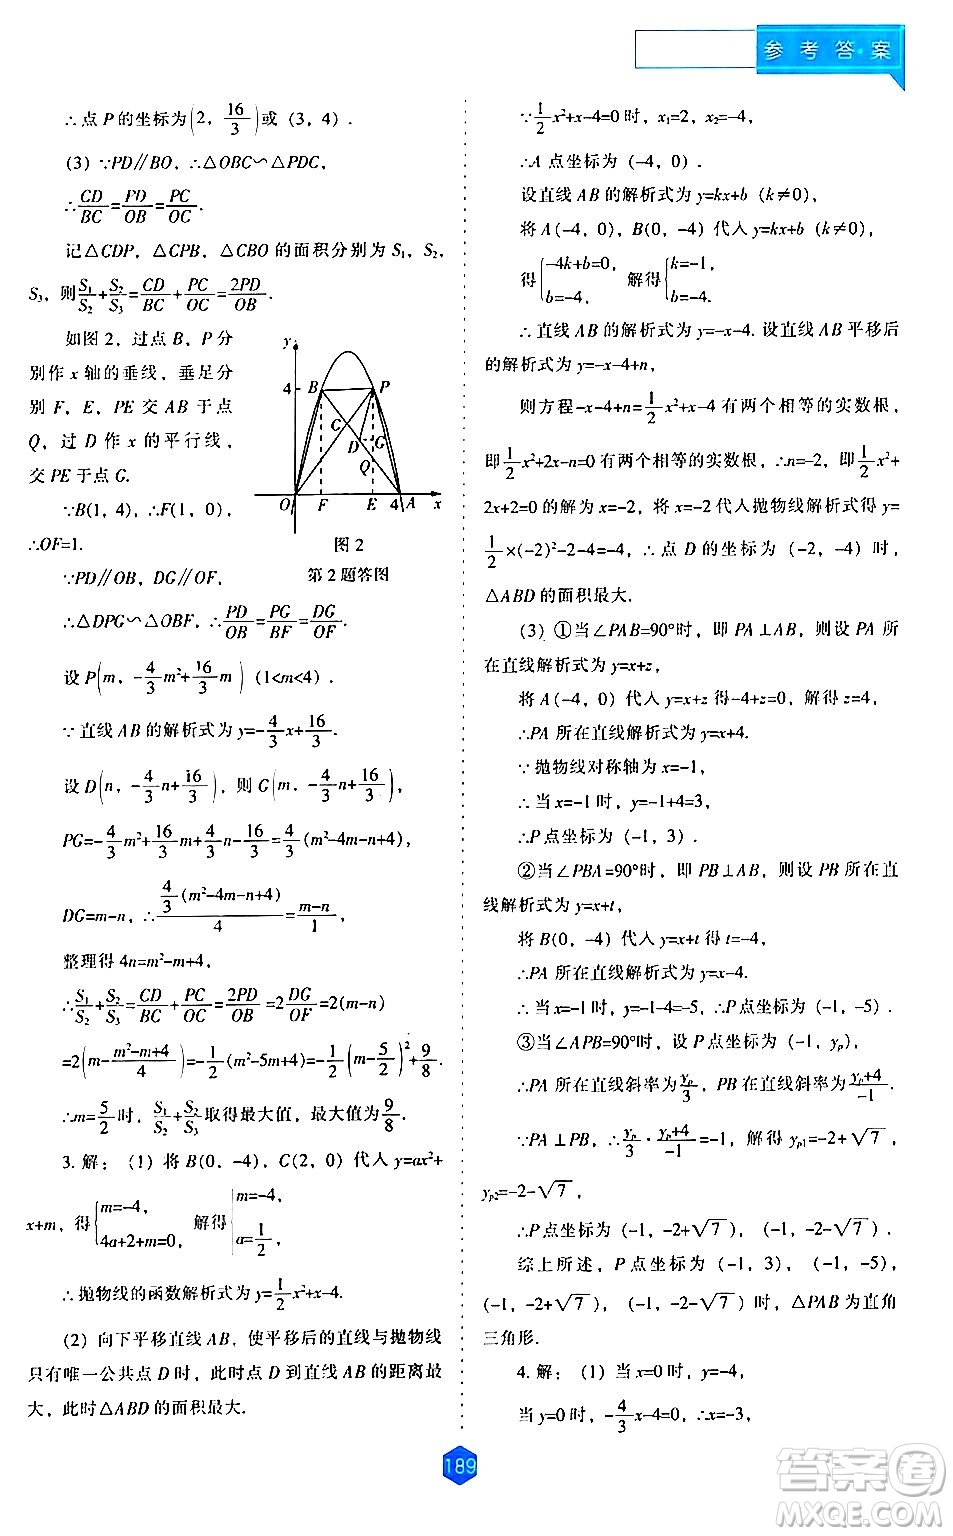 参考答案
∴点 P 的坐标为(2, 16/3)或（3，4）.
（3）∵PD∥BO，∴△OBC∽△PDC，
∴CD/BC=PD/OB=PC/OC.
记△CDP，△CPB，△CBO 的面积分别为 S₁，S₂，
S₃，则S₁/S₂+S₂/S₃=CD/BC+PC/OC=2PD/OB.
如图 2，过点 B，P 分
别作 x 轴的垂线，垂足分
别 F，E，PE 交 AB 于点
Q，过 D 作 x 的平行线，
交 PE 于点 G.
∵B(1，4)，∴F(1，0)，
∴OF=1.
y
4
B
P
C
D
G
Q
O
F
E
4
A
x
图 2
第 2 题答图
∵PD∥OB，DG∥OF，
∴△DPG∽△OBF，∴PD/OB=PG/BF=DG/OF.
设 P(m，-4/3m²+16/3m)（1<m<4）.
∵直线 AB 的解析式为 y=-4/3x+16/3.
设 D(n，-4/3n+16/3)，则 G(m，-4/3n+16/3)，
PG=-4/3m²+16/3m+4/3n-16/3=4/3(m²-4m-n+4)，
DG=m-n，∴4/3(m²-4m-n+4)/4=m-n/1，
整理得 4n=m²-m+4，
∴S₁/S₂+S₂/S₃=CD/BC+PC/OC=2PD/OB=2DG/OF=2(m-n)
=2(m-m²-m+4/4)=-1/2(m²-5m+4)=-1/2(m-5/2)²+9/8.
∴m=5/2时，S₁/S₂+S₂/S₃取得最大值，最大值为9/8.
3. 解：（1）将 B(0，-4)，C(2，0）代入 y=ax²+
x+m，得{m=-4，4a+2+m=0，解得{m=-4，a=1/2，
∴抛物线的函数解析式为 y=1/2x²+x-4.
（2）向下平移直线 AB，使平移后的直线与抛物线
只有唯一公共点 D 时，此时点 D 到直线 AB 的距离最
大，此时△ABD 的面积最大.
∵1/2x²+x-4=0 时，x₁=2，x₂=-4，
∴A 点坐标为（-4，0）.
设直线 AB 的解析式为 y=kx+b（k≠0），
将 A(-4，0)，B(0，-4）代入 y=kx+b（k≠0），
得{-4k+b=0，b=-4，解得{k=-1，b=-4.
∴直线 AB 的解析式为 y=-x-4. 设直线 AB 平移后
的解析式为 y=-x-4+n，
则方程-x-4+n=1/2x²+x-4 有两个相等的实数根，
即1/2x²+2x-n=0 有两个相等的实数根，∴n=-2，即1/2x²+
2x+2=0 的解为 x=-2，将 x=-2 代入抛物线解析式得 y=
1/2×(-2)²-2-4=-4，∴点 D 的坐标为（-2，-4）时，
△ABD 的面积最大.
（3）①当∠PAB=90°时，即 PA⊥AB，则设 PA 所
在直线解析式为 y=x+z，
将 A(-4，0）代入 y=x+z 得-4+z=0，解得 z=4，
∴PA 所在直线解析式为 y=x+4.
∵抛物线对称轴为 x=-1，
∴当 x=-1 时，y=-1+4=3，
∴P 点坐标为（-1，3）.
②当∠PBA=90°时，即 PB⊥AB，则设 PB 所在直
线解析式为 y=x+t，
将 B(0，-4）代入 y=x+t 得 t=-4，
∴PA 所在直线解析式为 y=x-4.
∴当 x=-1 时，y=-1-4=-5，∴P 点坐标为（-1，-5）.
③当∠APB=90°时，设 P 点坐标为（-1，yₚ），
∴PA 所在直线斜率为yₚ/3，PB 在直线斜率为yₚ+4/-1.
∵PA⊥PB，∴yₚ/3·yₚ+4/-1=-1，解得 yₚ₁=-2+√7，
yₚ₂=-2-√7，
∴P 点坐标为（-1，-2+√7），（-1，-2-√7）.
综上所述，P 点坐标为（-1，3），（-1，-5），
（-1，-2+√7），（-1，-2-√7）时，△PAB为直角
三角形.
4. 解：（1）当 x=0 时，y=-4，
当 y=0 时，-4/3x-4=0，∴x=-3，
189
答案圈
MXQE.COM